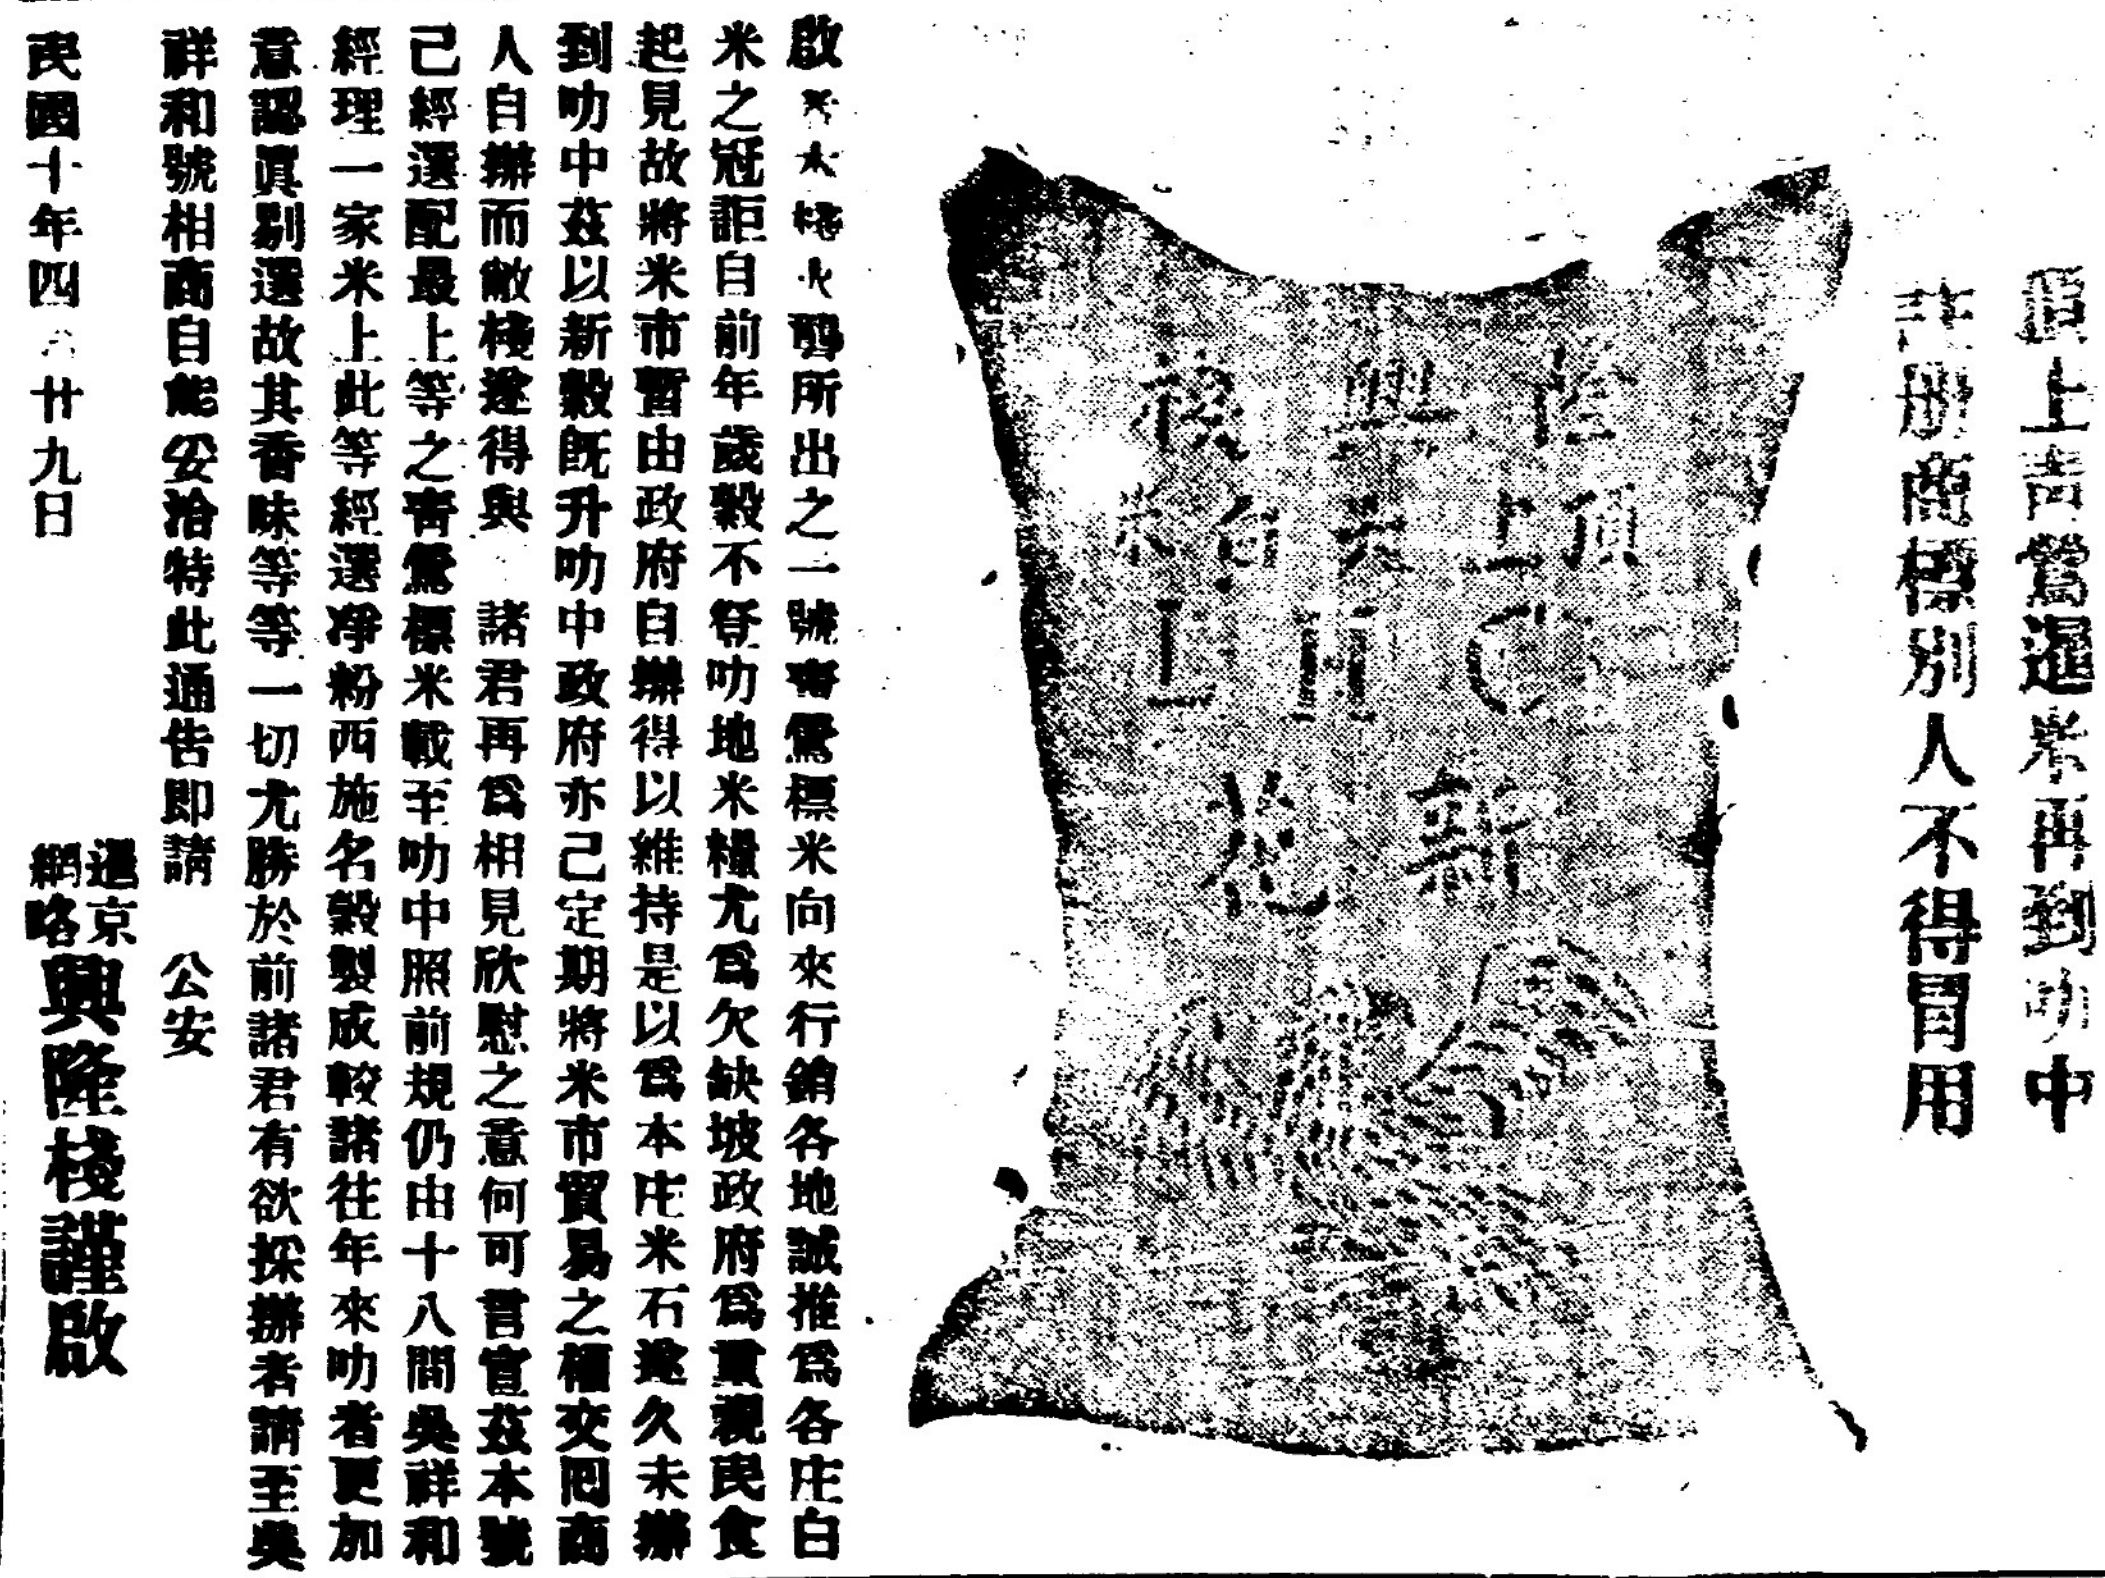 頂上青鶯暹米再到叻中
註册商標別人不得冒用
隆興棧
頂上天白米
新花
啟者本棧火礱所出之一號青鶯標米向來行銷各地誠推為各庄白
米之冠詎自前年歲穀不登叻地米糧尤為欠缺坡政府為重視民食
起見故將米市暫由政府自辦得以維持是以為本庄米石遂久未辦
到叻中茲以新穀既升叻中政府亦己定期將米市貿易之權交囘商
人自辦而敝棧遂得與 諸君再為相見欣慰之意何可言宣茲本號
己經選配最上等之青鶯標米載至叻中照前規仍由十八間吳祥和
經理一家米上此等經選淨粉西施名穀製成較諸往年來叻者更加
意認眞剔選故其香味等等一切尤勝於前諸君有欲採辦者請至吳
祥和號相商自能妥洽特此通告即請 公安
民國十年四月廿九日
暹京
網略
興隆棧謹啟